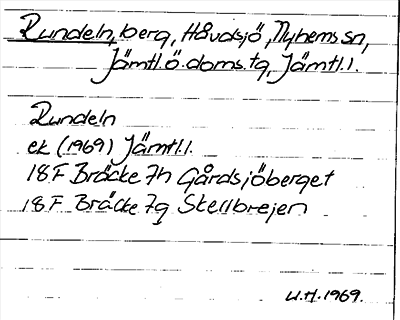 Rundeln, berg, Håvdsjö, Nyhems sn,
Jämtl.ö. doms.tg, Jämtl.l.
Rundeln
ek (1969) Jämtl.l.
18F Bräcke 7h Gårdsjöberget
18F Bräcke 7g Skellbrejen
U.H. 1969.